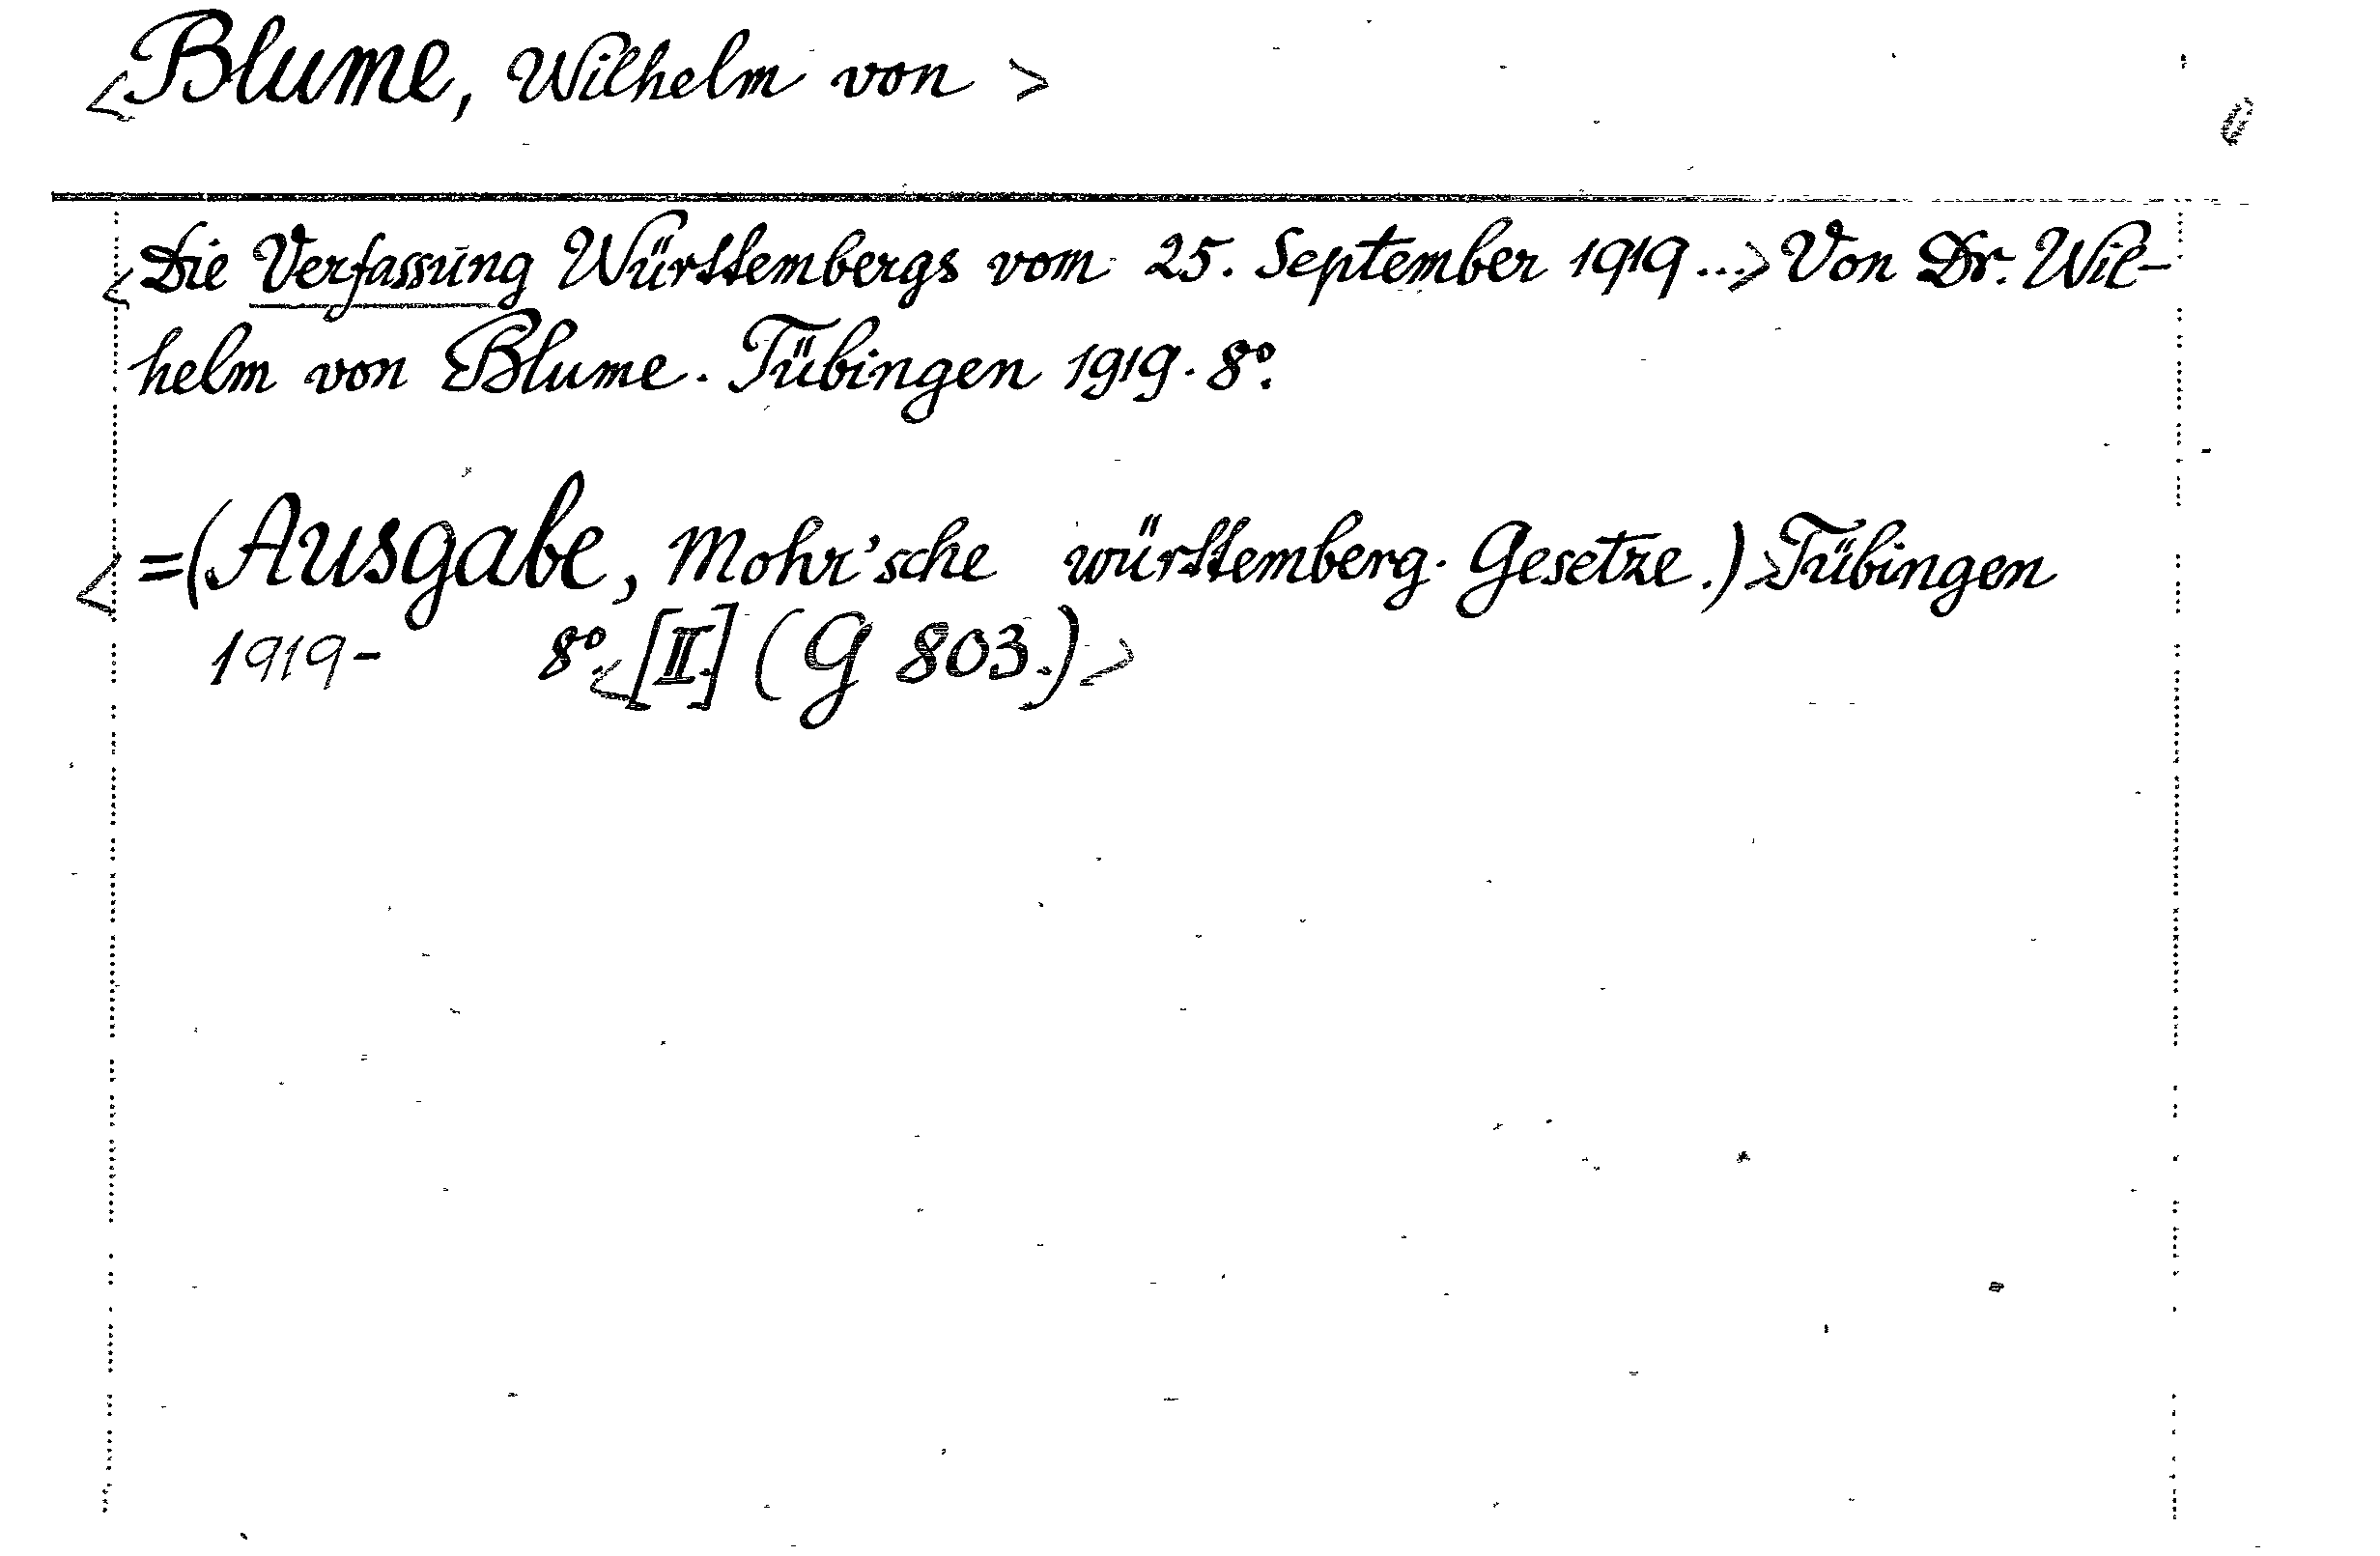 <Blume, Wilhelm von>
<Die Verfassung Württembergs vom 25. September 1919...> Von Dr. Wil-
helm von Blume. Tübingen 1919. 8°.
<=(Ausgabe, Mohr'sche württemberg. Gesetze.)> Tübingen
1919- 8°. <[II.] (G 803.)>